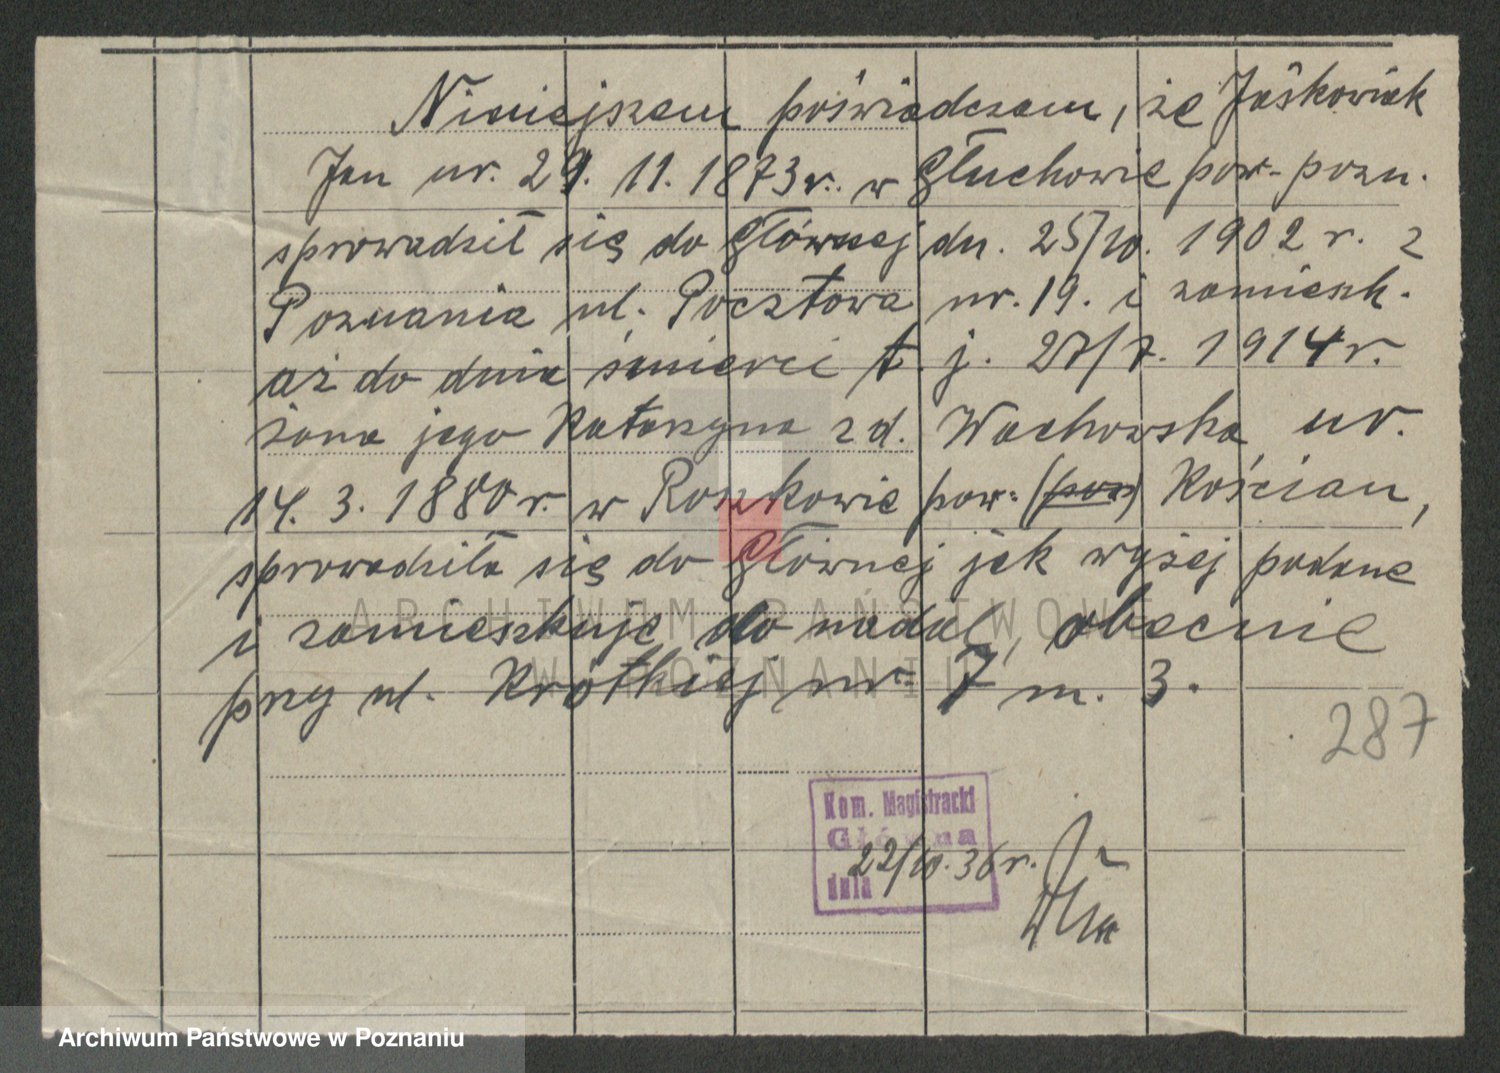 Niniejszem poświadczam, że Jaśkowiak
Jan ur. 29. 11. 1873 r. w Głuchowie pow. pozn.
sprowadził się do Głównej dn. 25/10. 1902 r. z
Poznania ul. Pocztowa nr. 19. i zamieszk.
aż do dnia śmierci t. j. 27/7. 1914 r.
żona jego Katarzyna zd. Wachowska ur.
14. 3. 1880 r. w Roszkowie pow. (pow) Kościan,
sprowadziła się do Głównej jak wyżej podane
i zamieszkuje do nadal, obecnie
przy ul. Krótkiej nr 7 m. 3.
287
Kom. Magistracki
Główna
dnia 22/10. 36 r.
ARCHIWUM PAŃSTWOWE
W POZNANIU
Archiwum Państwowe w Poznaniu